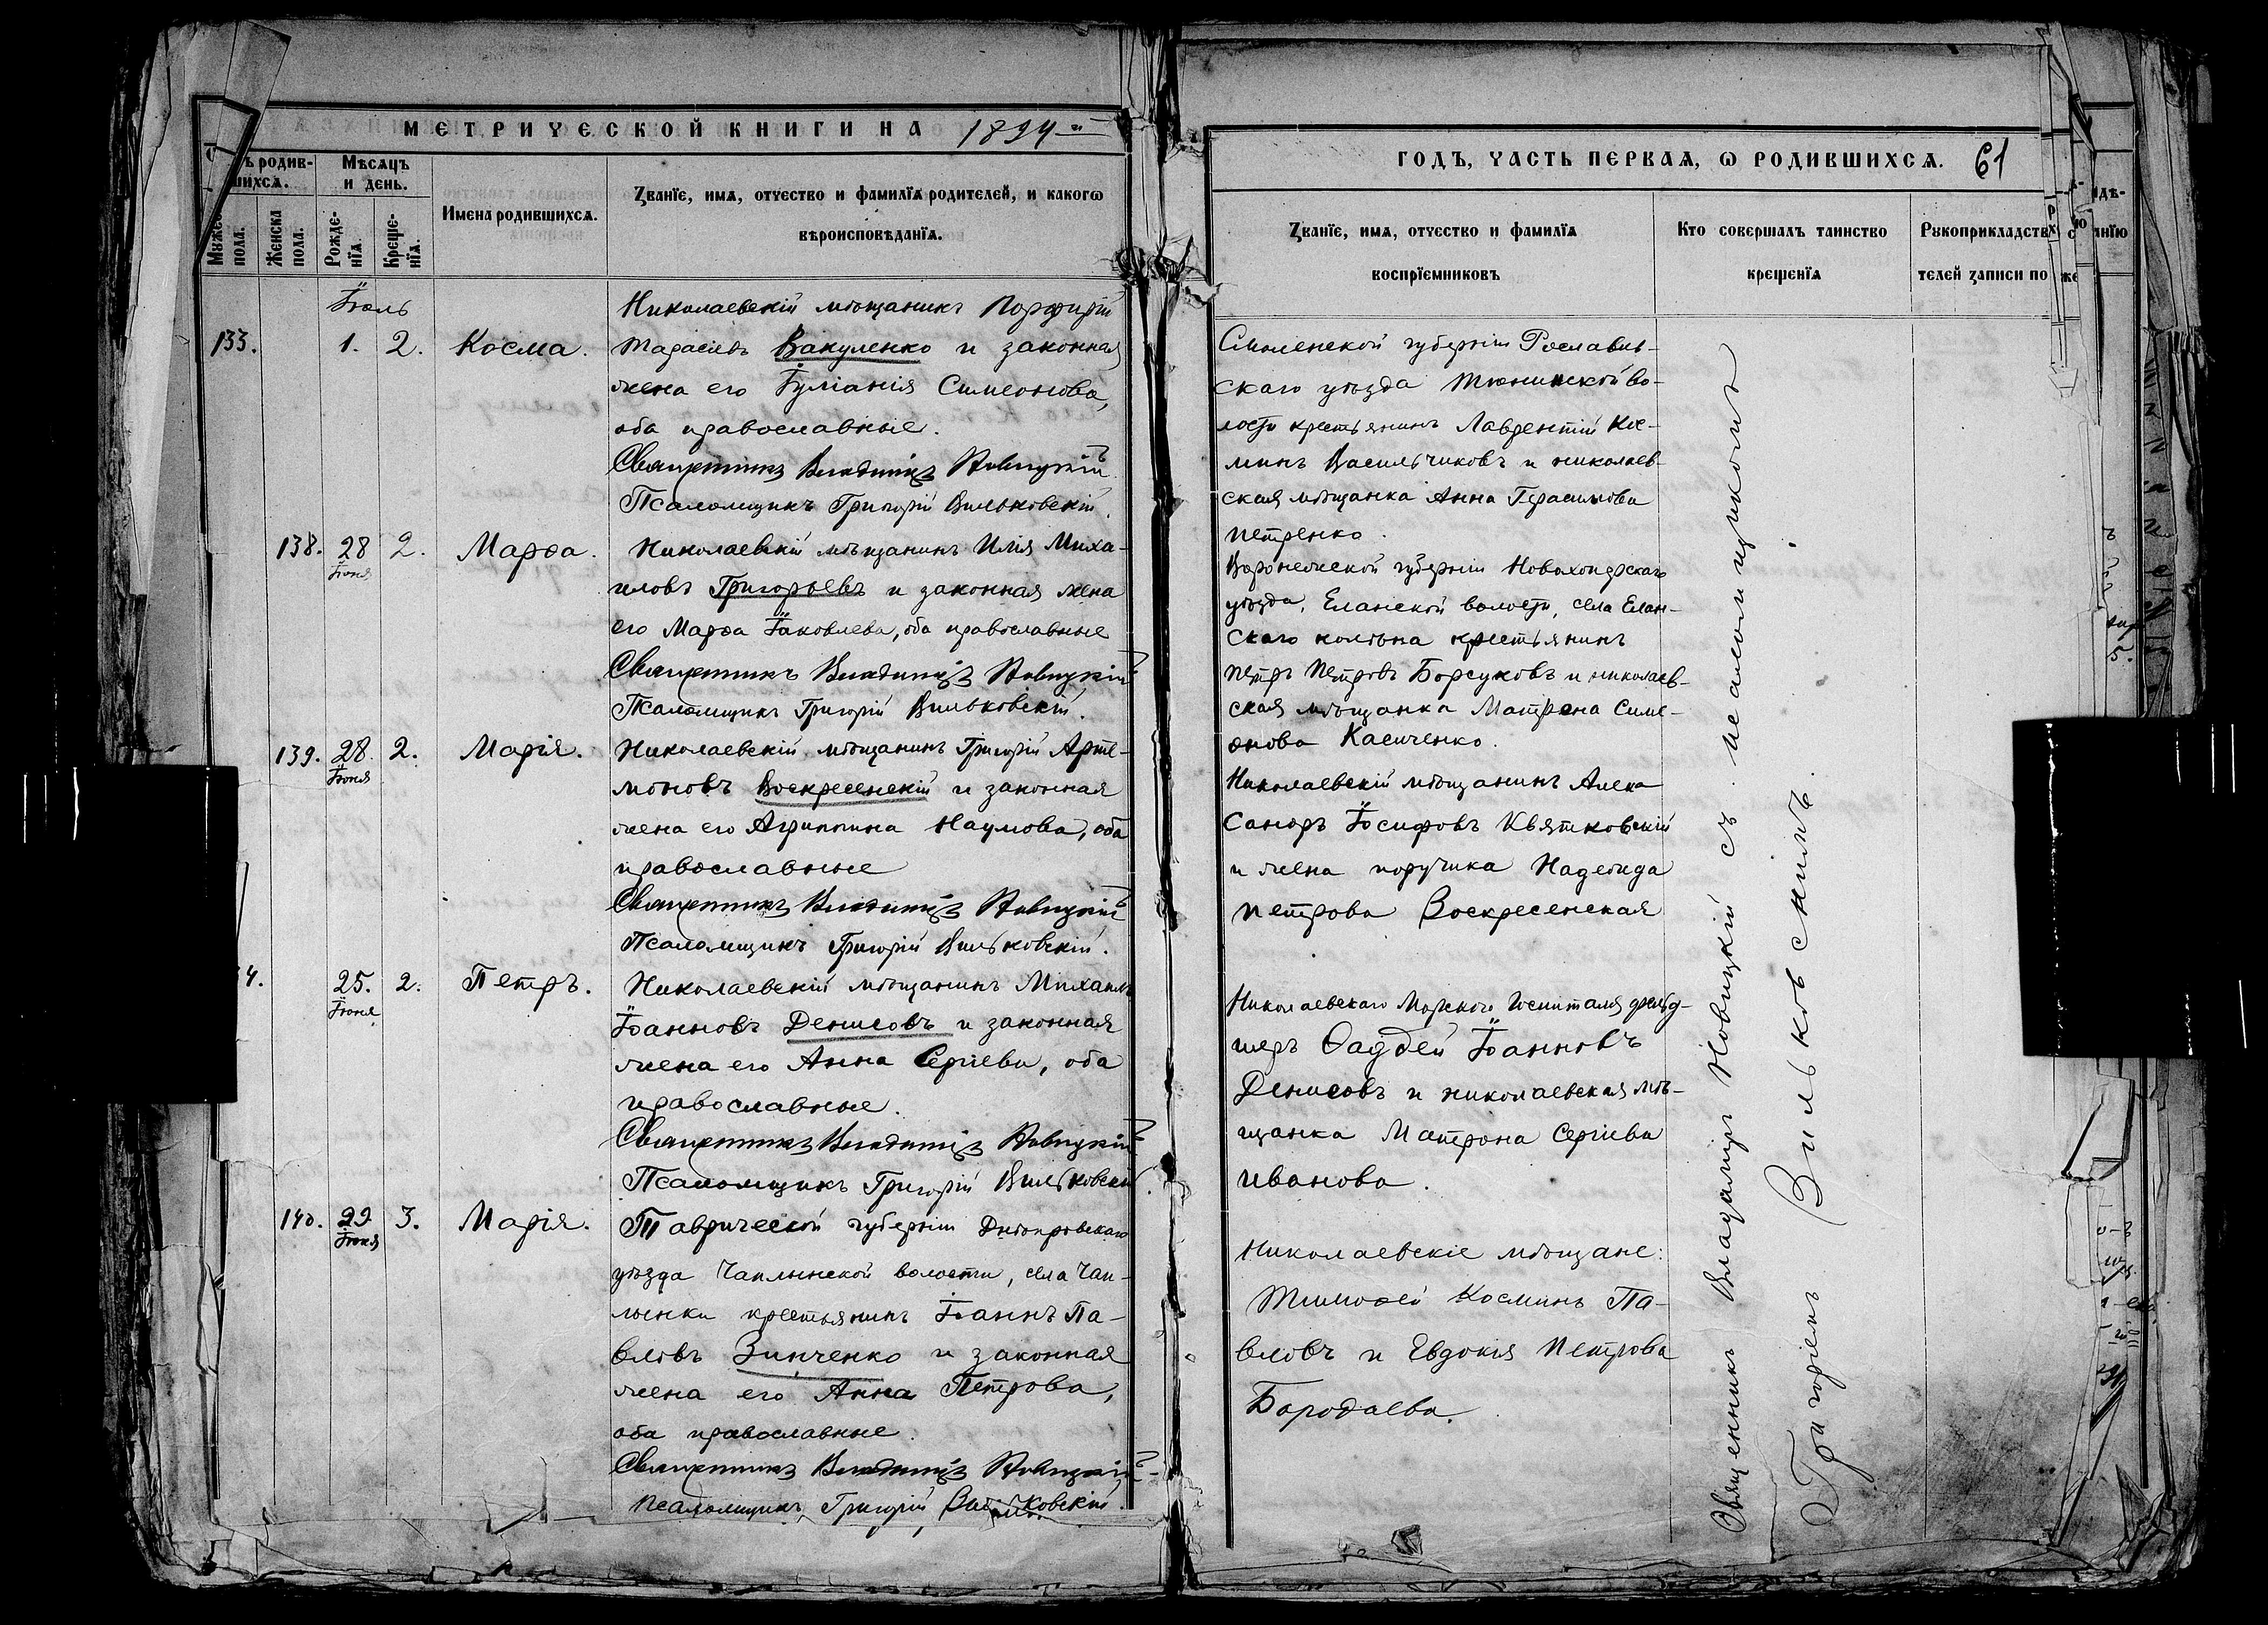 МЕТРИЧЕСКОЙ КНИГИ НА 1894-й
ъ родив-
шихся.
Мѣсяцъ
и день.
Муже
пола.
Женска
пола.
Рожде-
нія.
Креще-
нія.
Имена родившихся.
Званіе, имя, отчество и фамилія родителей, и какогѡ
вѣроисповѣданія.
Іюль
133. 1. 2. Косма.
Николаевскій мѣщанинъ Порфирій
Тарасовъ Вакуленко и законная
жена его Іуліанія Симеонова,
оба православные.
Священникъ Владиміръ Новицкій
Псаломщикъ Григорій Вильковскій.
138. 28 Іюня 2. Марѳа.
Николаевскій мѣщанинъ Илія Миха-
иловъ Григорьевъ и законная жена
его Марѳа Іаковлева, оба православные
Священникъ Владиміръ Новицкій
Псаломщикъ Григорій Вильковскій.
139. 28. Іюня 2. Марія.
Николаевскій мѣщанинъ Григорій Арте-
моновъ Воскресенскій и законная
жена его Агриппина Наумова, оба
православные
Священникъ Владиміръ Новицкій
Псаломщикъ Григорій Вильковскій.
4. 25. Іюня 2. Петръ.
Николаевскій мѣщанинъ Михаилъ
Іоанновъ Денисовъ и законная
жена его Анна Сергіева, оба
православные.
Священникъ Владиміръ Новицкій
Псаломщикъ Григорій Вильковскій
140. 29 Іюня 3. Марія.
Таврической губерніи Днѣпровскаго
уѣзда Чаплынской волости, села Чап-
лынки крестьянинъ Іоаннъ Па-
вловъ Зинченко и законная
жена его Анна Петрова,
оба православные.
Священникъ Владиміръ Новицкій
Псаломщикъ Григорій Вильковскій.
ГОДЪ, ЧАСТЬ ПЕРВАЯ, Ѡ РОДИВШИХСЯ. 61
Званіе, имя, отчество и фамилія
воспріемниковъ
Кто совершалъ таинство
крещенія
Рукоприкладств
телей записи по
Смоленской губерніи Рославль-
скаго уѣзда Тюнинской во-
лости крестьянинъ Лаврентій Кос-
минъ Васильчиковъ и николаев-
ская мѣщанка Анна Герасимова
Петренко.
Воронежской губерніи Новохоперскаго
уѣзда, Еланской волости, села Елан-
скаго колѣна крестьянинъ
Петръ Петровъ Борсуковъ и николаев-
ская мѣщанка Матрона Симе-
онова Касиченко.
Николаевскій мѣщанинъ Алек-
сандръ Іосифовъ Квятковскій
и жена поручика Надежда
Петрова Воскресенская
Николаевскаго Морского Госпиталя фельд-
шеръ Ѳаддей Іоанновъ
Денисовъ и николаевская мѣ-
щанка Матрона Сергіева
Иванова.
Николаевскіе мѣщане:
Тимоѳей Косминъ Па-
вловъ и Евдокія Петрова
Бородаева.
Священникъ Владиміръ Новицкій съ псаломщикомъ
Григоріемъ Вильковскимъ.